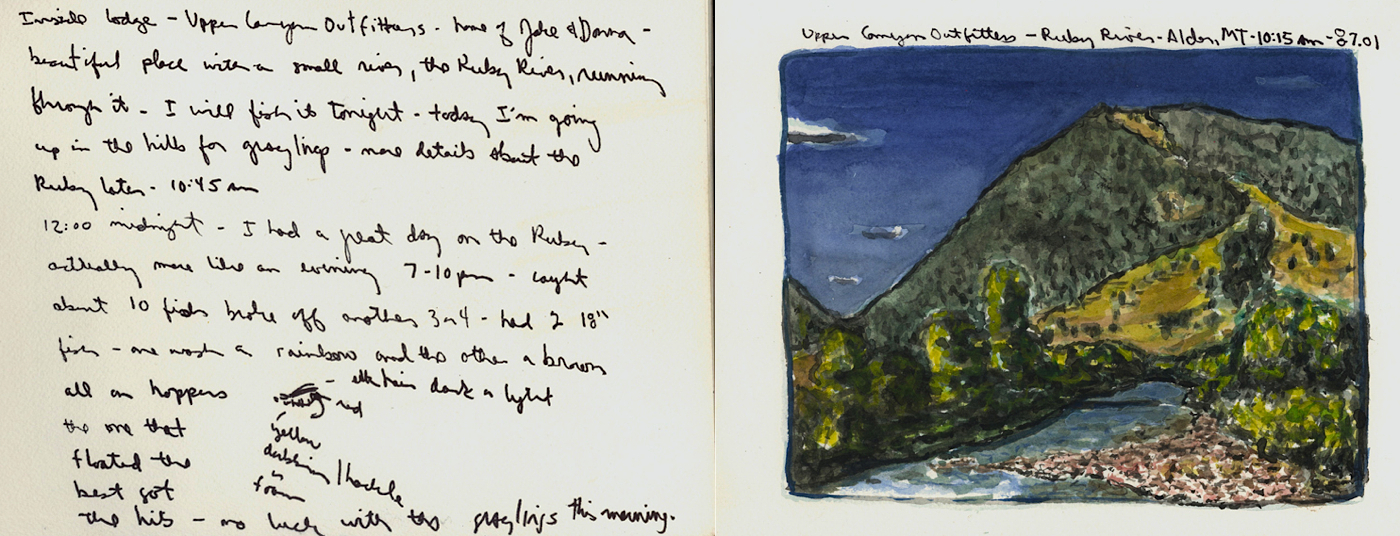 Inside lodge - Upper Canyon Outfitters - home of Jake & Donna -
beautiful place with a small river, the Ruby River, running
through it - I will fish it tonight - today I'm going
up in the hills for graylings - more details about the
Ruby later - 10:45 am
12:00 midnight - I had a great day on the Ruby -
actually more like an evening 7-10 pm - caught
about 10 fish broke off another 3 or 4 - had 2 18"
fish - one was a rainbow and the other a brown
all on hoppers - elk hair dark & light
red
the one that yellow
floated the dubbing / hackle
best got foam
the hits - no luck with the graylings this morning.
Upper Canyon Outfitters - Ruby River - Alder, MT - 10:15 am - 8.7.01